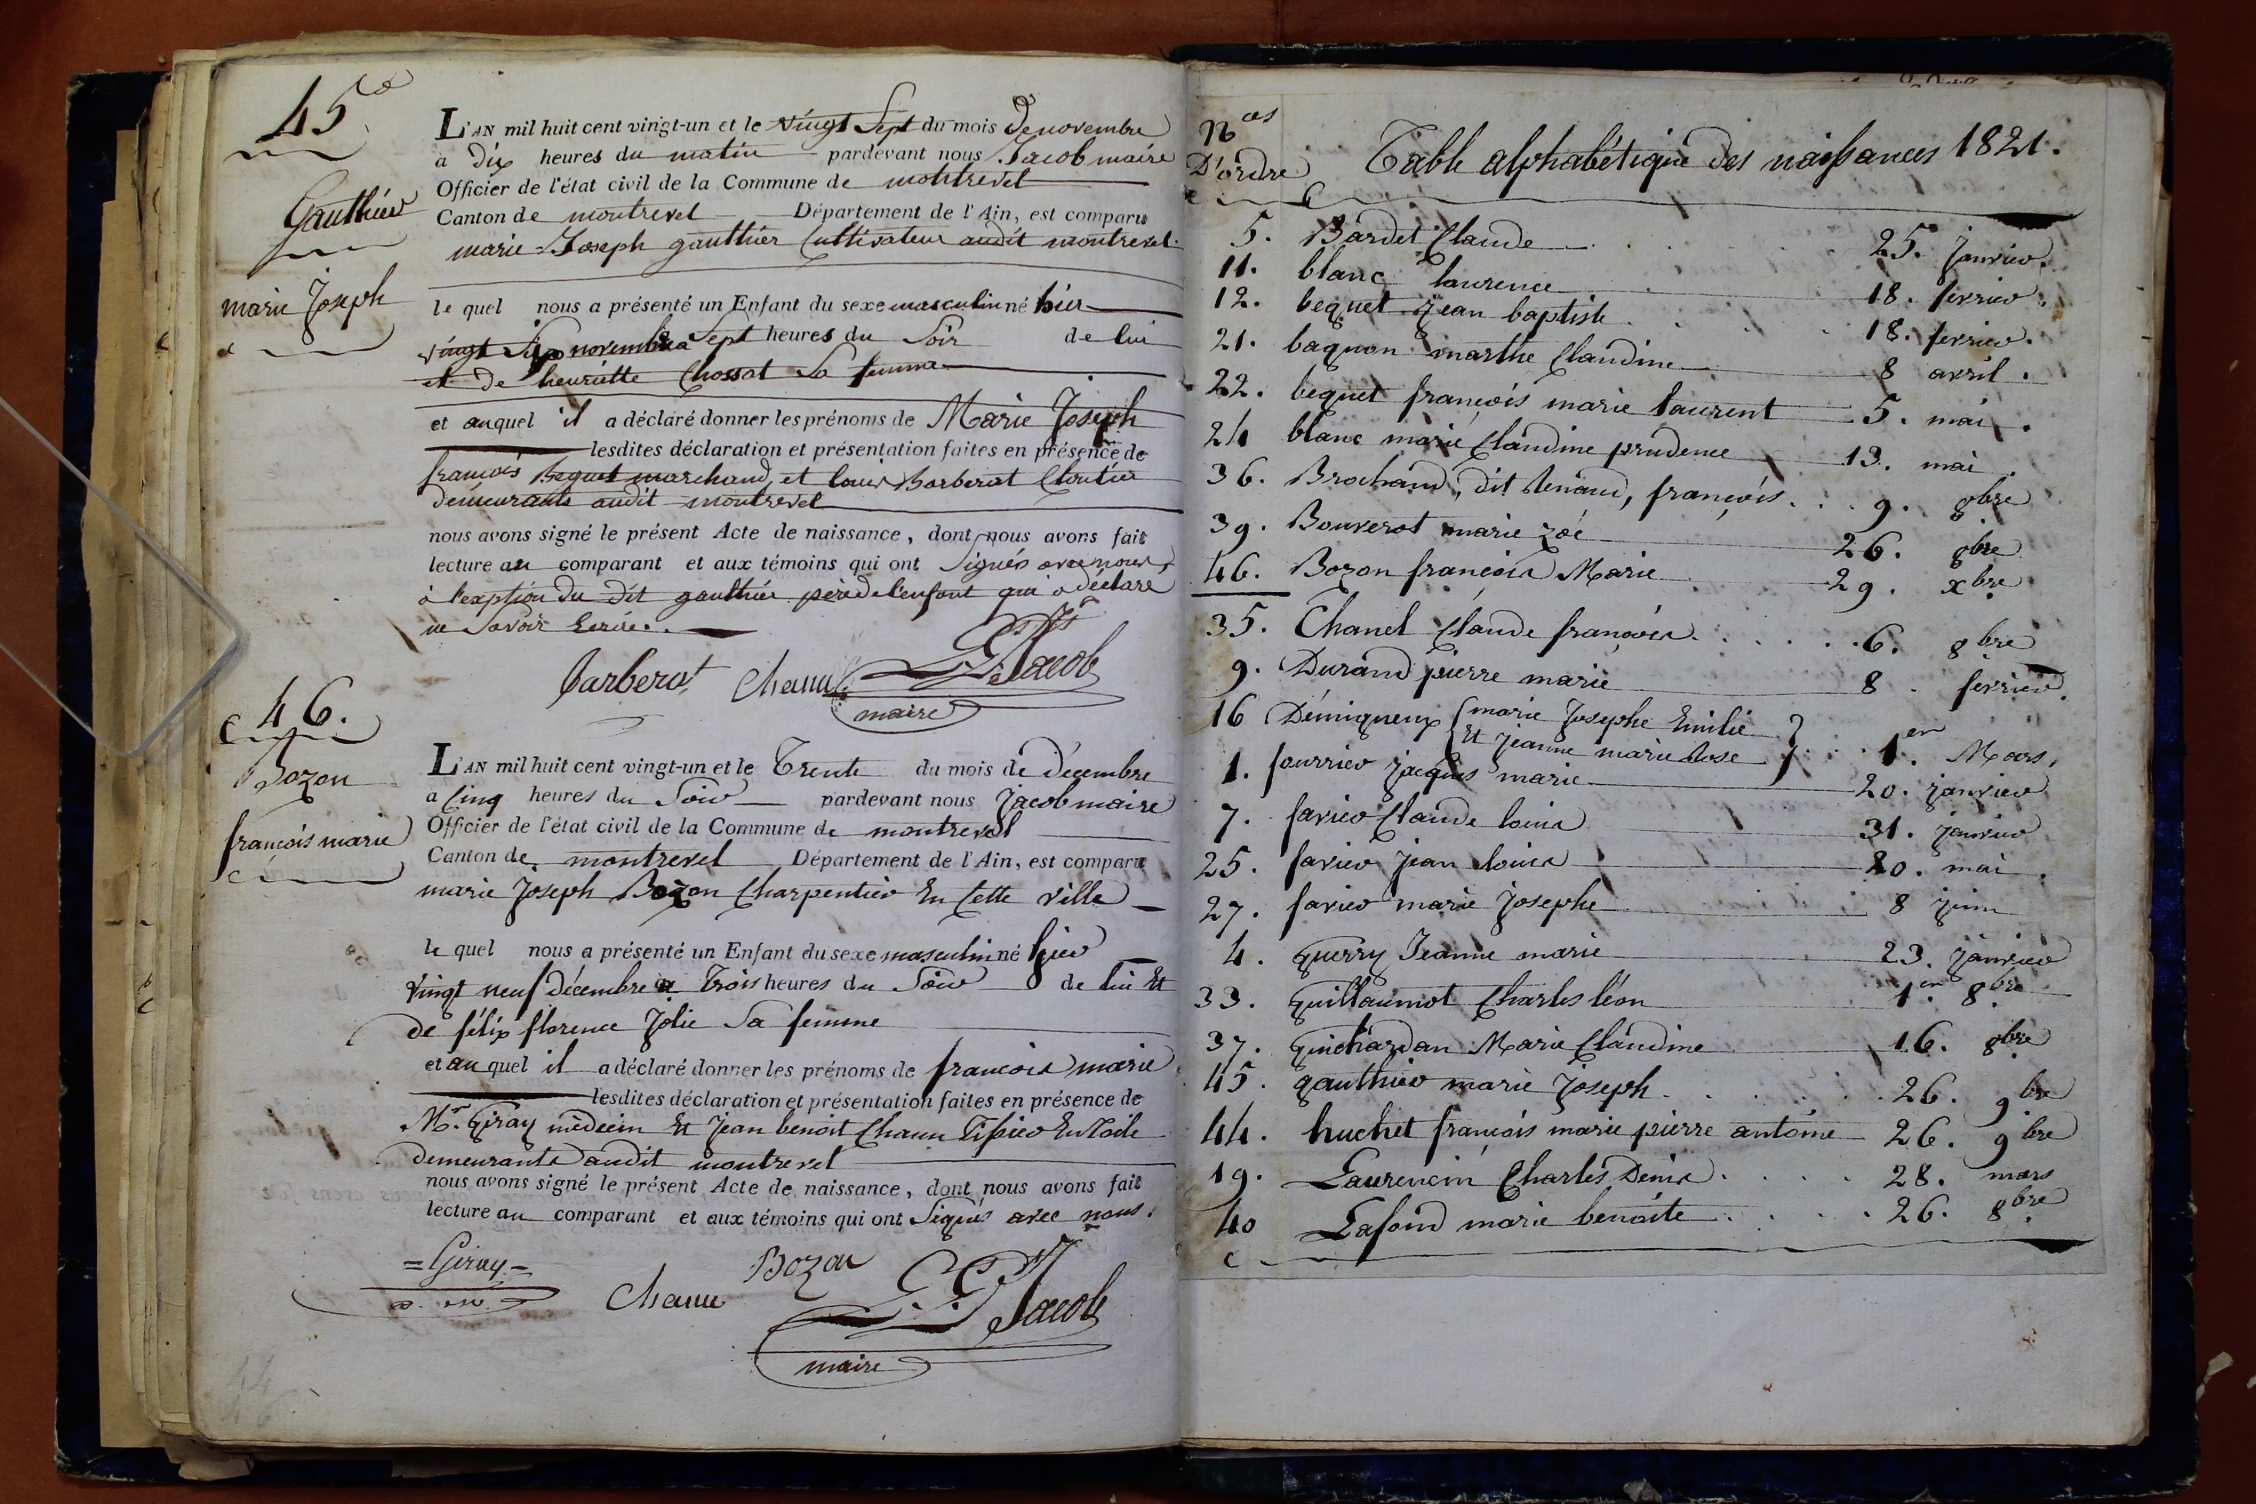 45e
Gauthier
marie Joseph
L'AN mil huit cent vingt-un et le vingt Sept du mois de novembre
a dix heures du matin pardevant nous Jacob maire
Officier de l'état civil de la Commune de montrevel
Canton de montrevel Département de l'Ain, est comparu
marie-Joseph gauthier Cultivateur audit montrevel.
le quel nous a présenté un Enfant du sexe masculin né hier
vingt Six novembre a Sept heures du Soir de lui
et de henriette Chossat Sa femme
et auquel il a déclaré donner les prénoms de Marie Joseph
lesdites déclaration et présentation faites en présence de
francois Bequet marchand, et louis Barberat Cloutier
demeurants audit montrevel
nous avons signé le présent Acte de naissance, dont nous avons fait
lecture au comparant et aux témoins qui ont Signés avec nous,
à l'exption du dit gauthier père de l'enfant qui a déclaré
ne Savoir Ecrire.
Barberat Jacob
maire
46.
Bozon
francois marie
L'AN mil huit cent vingt-un et le Trente du mois de décembre
a Cinq heures du Soir pardevant nous Jacob maire
Officier de l'état civil de la Commune de montrevel
Canton de montrevel Département de l'Ain, est comparu
marie Joseph Bozon Charpentier En Cette ville
le quel nous a présenté un Enfant du sexe masculin né hier
vingt neuf décembre a Trois heures du Soir de lui Et
de félix florence Jolie Sa femme
et au quel il a déclaré donner les prénoms de francois marie
lesdites déclaration et présentation faites en présence de
Mr. Giray médecin Et Jean benoit Chanu Tissier En Toile
demeurants audit montrevel
nous avons signé le présent Acte de naissance, dont nous avons fait
lecture au comparant et aux témoins qui ont Signés avec nous.
=Giray= Bozon
Chanu Jacob
maire
Nos
D'ordre
Table alphabétique des naissances 1821.
5. Bardet Claude 25. janvier.
11. blanc laurence 18. fevrier.
12. bequet jean baptiste 18. fevrier.
21. bagnon marthe Claudine 8 avril.
22. bequet françois marie laurent 5. mai.
24 blanc marie Claudine prudence 13. mai.
36. Brochand, dit Renaud, françois. 9. 8bre
39. Bouverot marie zoé 26. 8bre
46. Bozon francois Marie 29. xbre.
35. Chanel Claude françois. 6. 8bre
9. Durand pierre marie 8. fevrier.
16 Démiqueux { marie Josephe Emilie
Et Jeanne marie Rose } 1er Mars.
1. fourrier jacques marie 20. janvier
7. favier Claude louis 31. janvier
25. favier jean louis 20. mai.
27. favier marie Josephe 8 juin
4. guerry Jeanne marie 23. janvier
33. guillaumot Charles léon 1er 8bre
37. guichardan Marie Claudine 16. 8bre
45. gauthier marie Joseph. 26. 9bre
44. huchet françois marie pierre antoine 26. 9bre
19. Laurencin Charles Denis. 28. mars
40 Lafond marie benoite. 26. 8bre